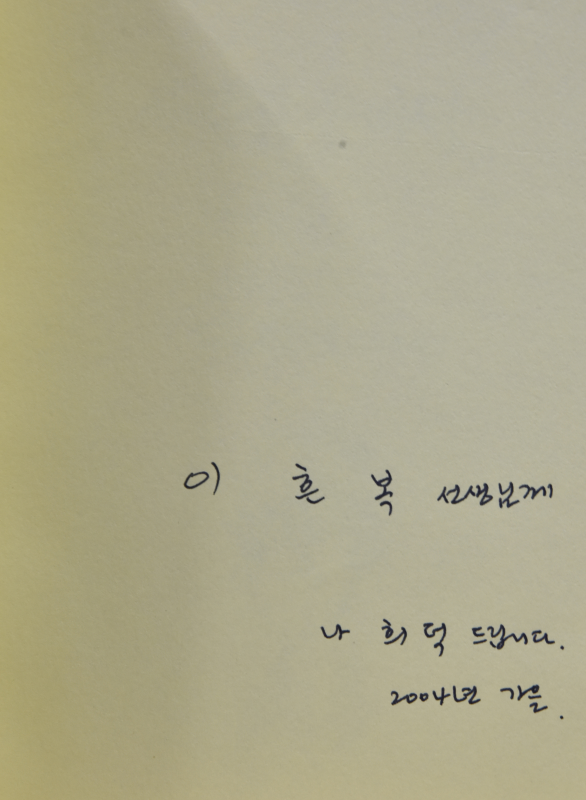 이 흔 복 선생님께
나 희 덕 드립니다.
2004년 가을.